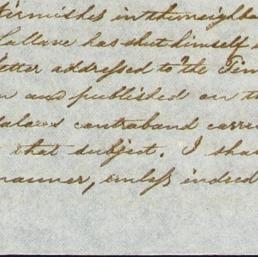 skirmishes in the neighbo
Callave has shut himself
etter addressed to the Tim
n and published on th
contraband carri
that subject. I sha
manner, unless indeed